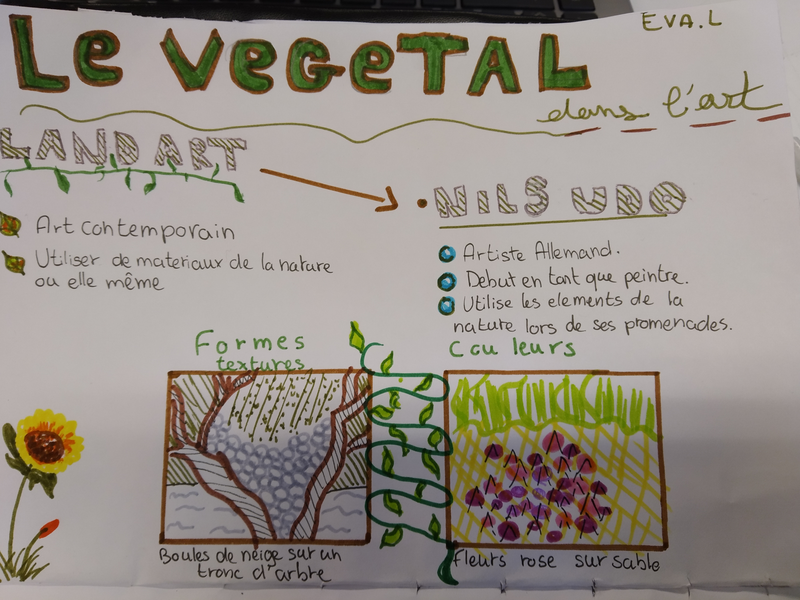 EVA.L
Le VeGeTAL
dans l'art
LAND ART
• NILS UDO
Art contemporain
Utiliser de materiaux de la nature
ou elle même
Artiste Allemand.
Debut en tant que peintre.
Utilise les elements de la
nature lors de ses promenades.
Formes
textures
Couleurs
Boules de neige sur un
tronc d'arbre
fleurs rose sur sable